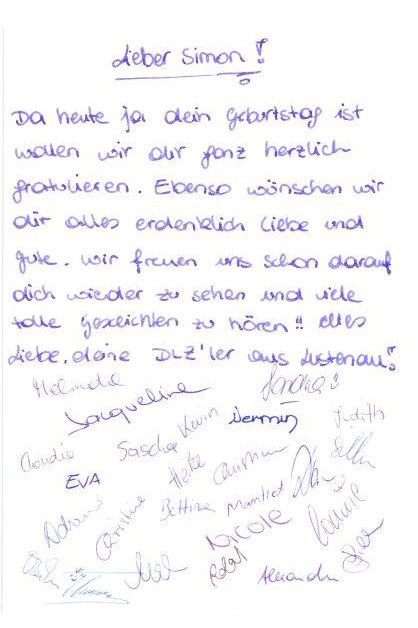 Lieber Simon!
Da heute ja dein Geburtstag ist
wollen wir dir ganz herzlich
gratulieren. Ebenso wünschen wir
dir alles erdenklich Liebe und
gute. Wir freuen uns schon darauf
dich wieder zu sehen und viele
tolle Geschichten zu hören!! Alles
Liebe, deine DLZ'ler aus Lustenau!
Jacqueline
Kevin Nermin Judith
Claudia Sascha
EVA Heike
Christine Bettina Manfred
Nicole